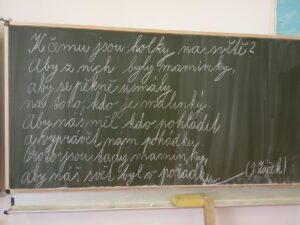 K čemu jsou holky na světě?
Aby z nich byly maminky,
aby se pěkně usmály
na toho, kdo je malinký.
Aby nás měl kdo pohladit
a vyprávět nám pohádky.
Proto jsou tady maminky,
aby náš svět byl v pořádku.
(J. Žáček)